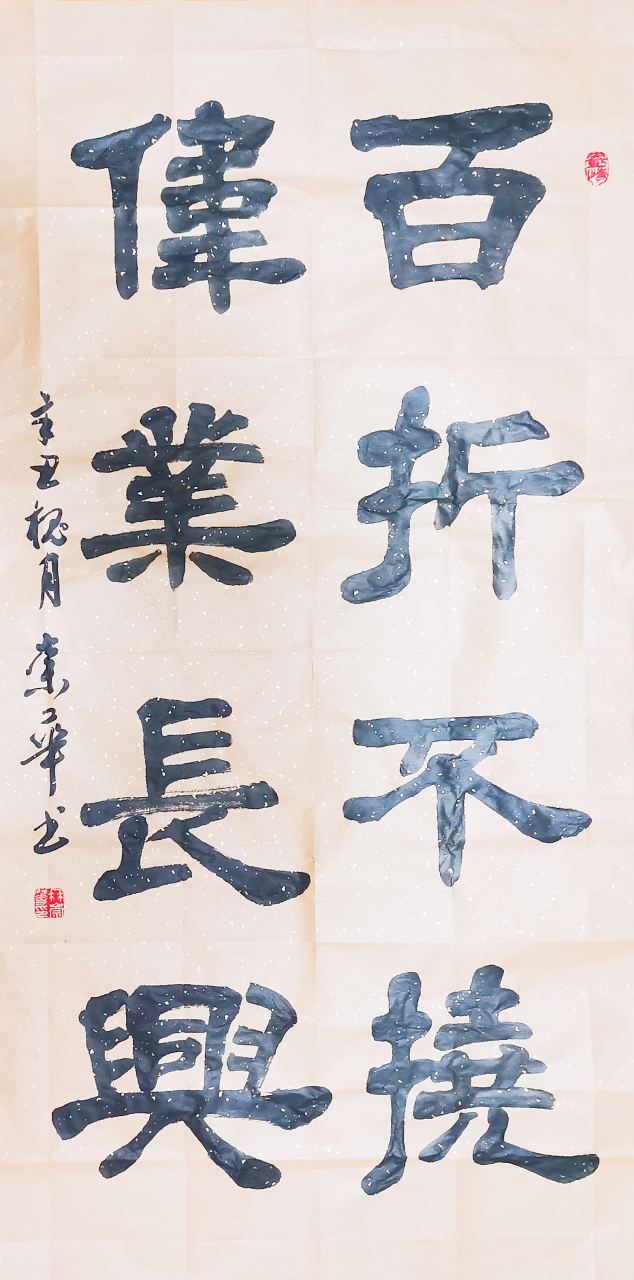 百折不撓
偉業長興
辛丑槐月 崇華书